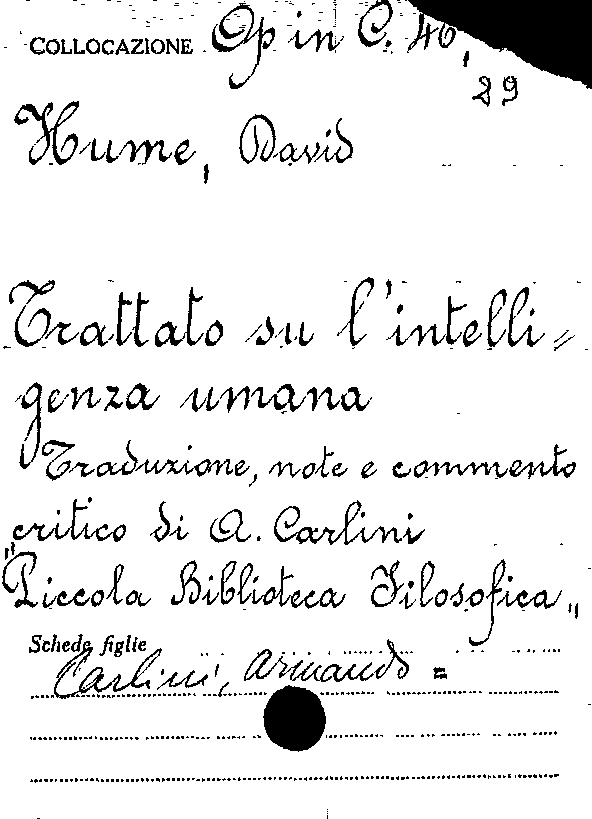 COLLOCAZIONE Op in C. 46,
29
Hume, David
Trattato su l'intelli-
genza umana
Traduzione, note e commento
critico di A. Carlini
"Piccola Biblioteca Filosofica"
Schede figlie
Carlini, Armando =